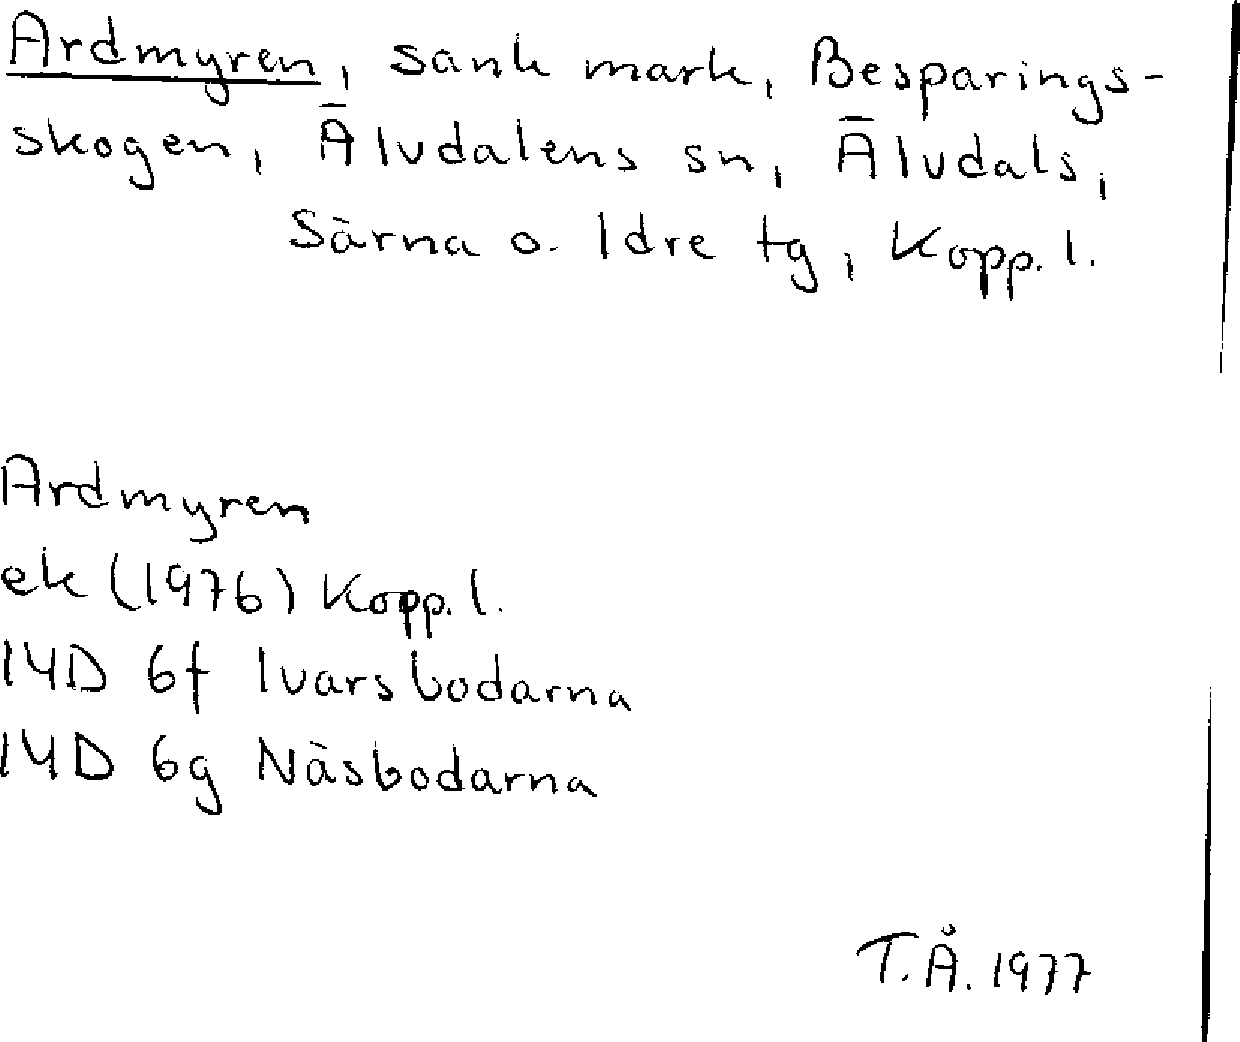 Ardmyren, sank mark, Besparings-
skogen, Älvdalens sn, Älvdals,
Särna o. Idre tg, Kopp. l.
Ardmyren
ek (1976) Kopp. l.
14D 6f Ivarsbodarna
14D 6g Näsbodarna
T.Å. 1977